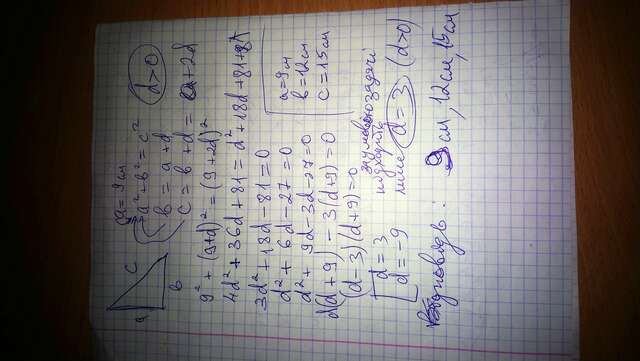 c
a
b
a = 9 см
a² + b² = c²
d>0
b = a + d
c = b + d = a + 2d
9² + (9+d)² = (9+2d)²
4d² + 36d + 81 = d² + 18d + 81 + 81
3d² + 18d - 81 = 0
d² + 6d - 27 = 0
d² + 9d - 3d - 27 = 0
d(d+9) - 3(d+9) = 0
(d-3)(d+9) = 0
a = 9см
b = 12см
c = 15см
d = 3
d = -9
за умовою задачі
підходить
лише d = 3 (d>0)
Відповідь: 9 см, 12см, 15см